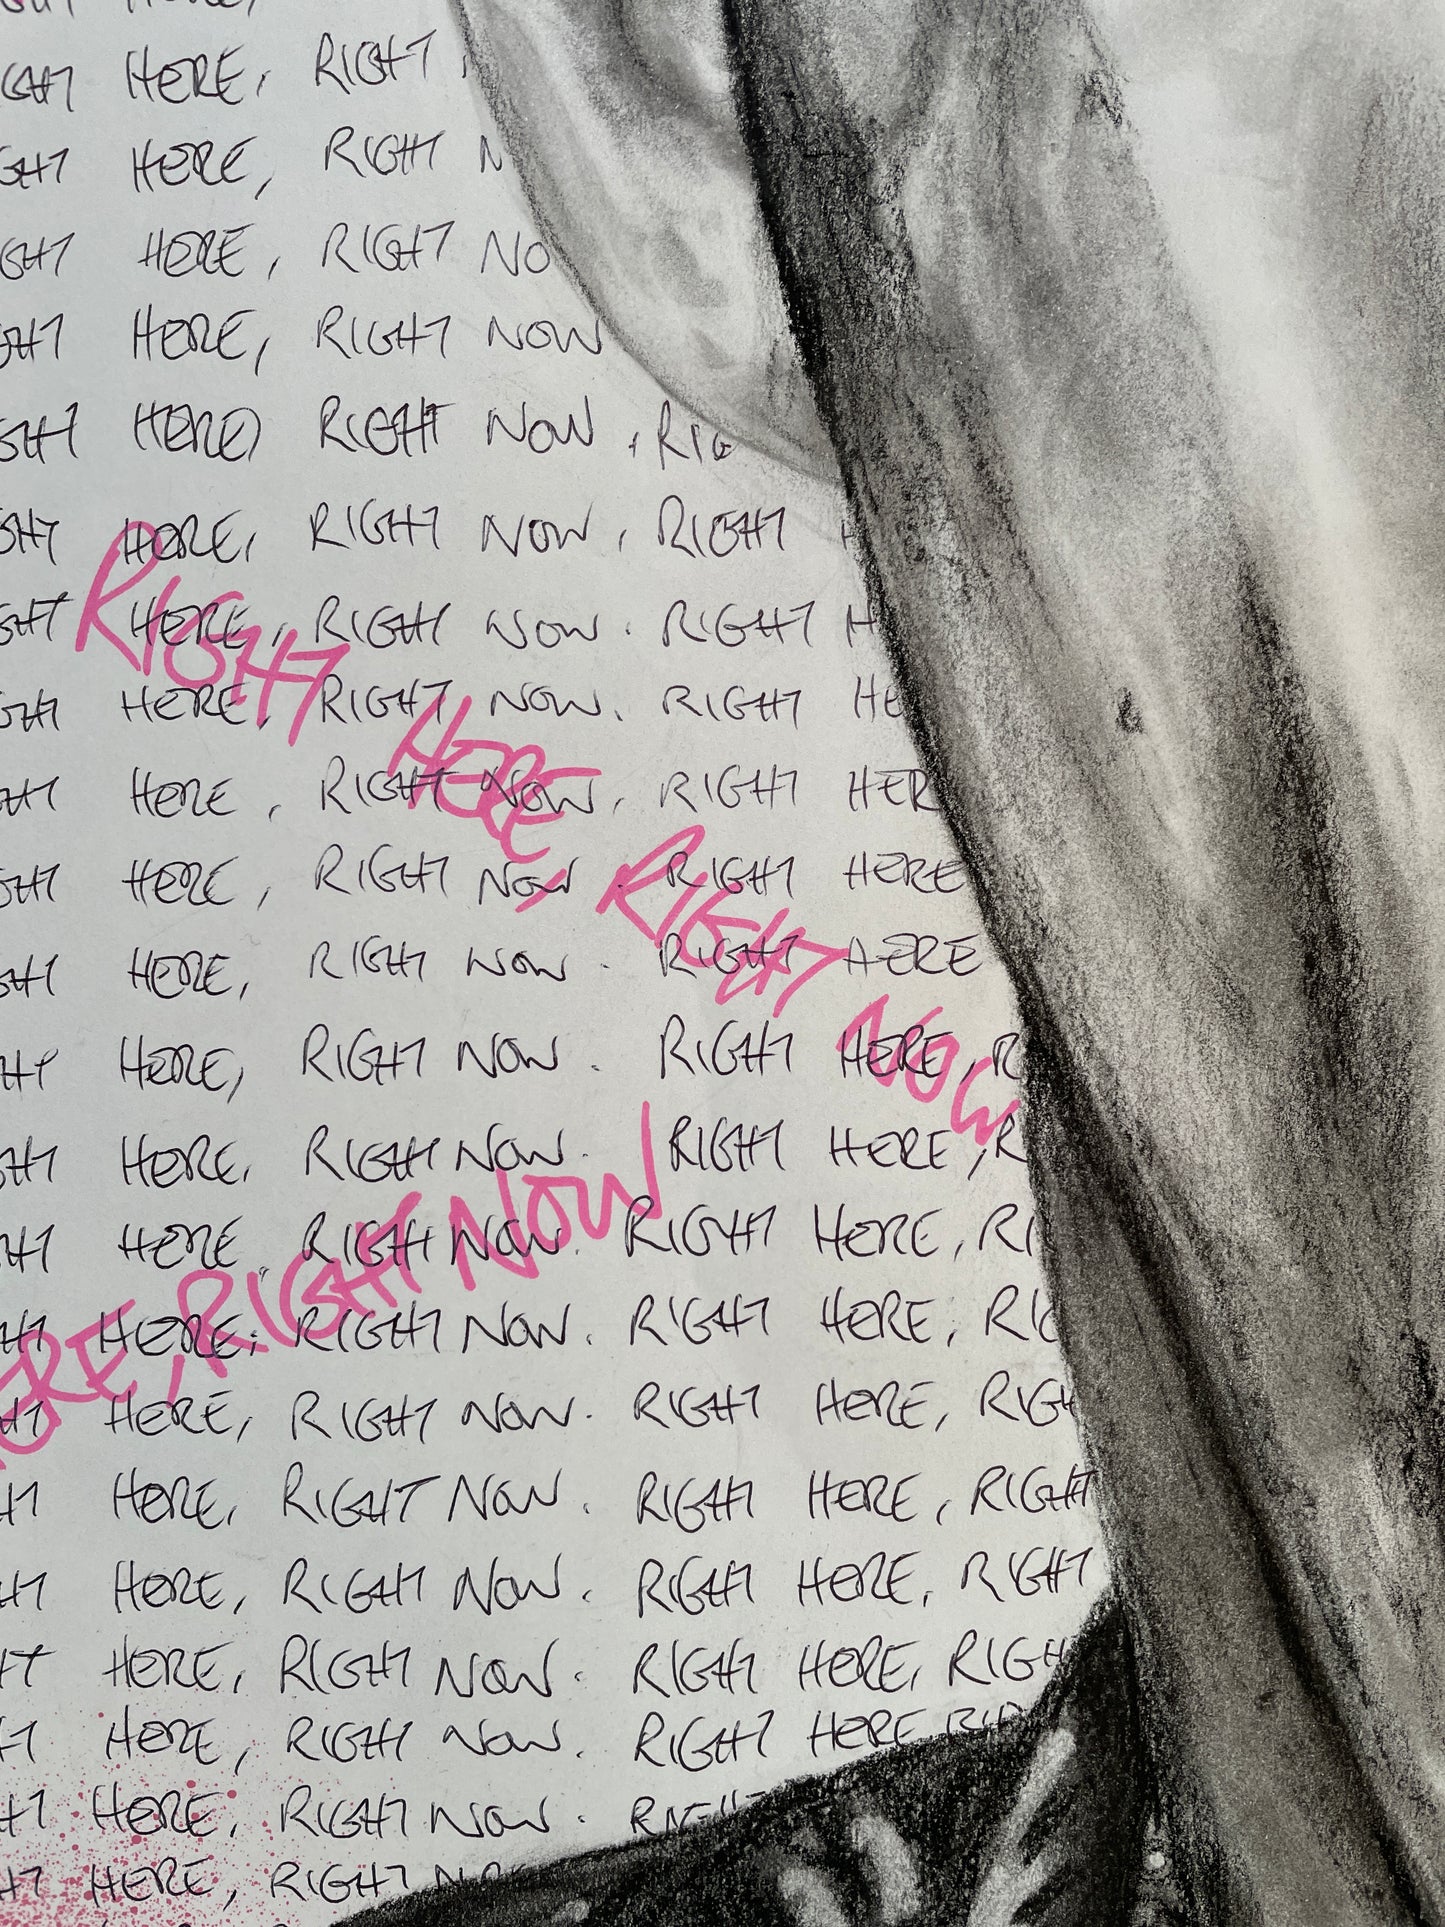 HERE,
IGHT HERE, RIGHT
GHT HERE, RIGHT N
IGHT HERE, RIGHT NO
GHT HERE, RIGHT NOW
GHT HERE, RIGHT NOW, RIG
GHT HERE, RIGHT NOW, RIGHT H
GHT HERE, RIGHT NOW. RIGHT H
GHT HERE, RIGHT NOW. RIGHT HE
GHT HERE, RIGHT NOW, RIGHT HER
GHT HERE, RIGHT NOW. RIGHT HERE
GHT HERE, RIGHT NOW. RIGHT HERE
HT HERE, RIGHT NOW. RIGHT HERE, R
GHT HERE, RIGHT NOW. RIGHT HERE, R
HT HERE, RIGHT NOW. RIGHT HERE, RI
HT HERE, RIGHT NOW. RIGHT HERE, RIG
HT HERE, RIGHT NOW. RIGHT HERE, RIGH
HT HERE, RIGHT NOW. RIGHT HERE, RIGHT
HT HERE, RIGHT NOW. RIGHT HERE, RIGHT
HT HERE, RIGHT NOW. RIGHT HERE, RIGH
HT HERE, RIGHT NOW. RIGHT HERE RIG
HT HERE, RIGHT NOW. RIGHT
HT HERE, RIGHT NO
RIGHT HERE, RIGHT NOW
HERE, RIGHT NOW